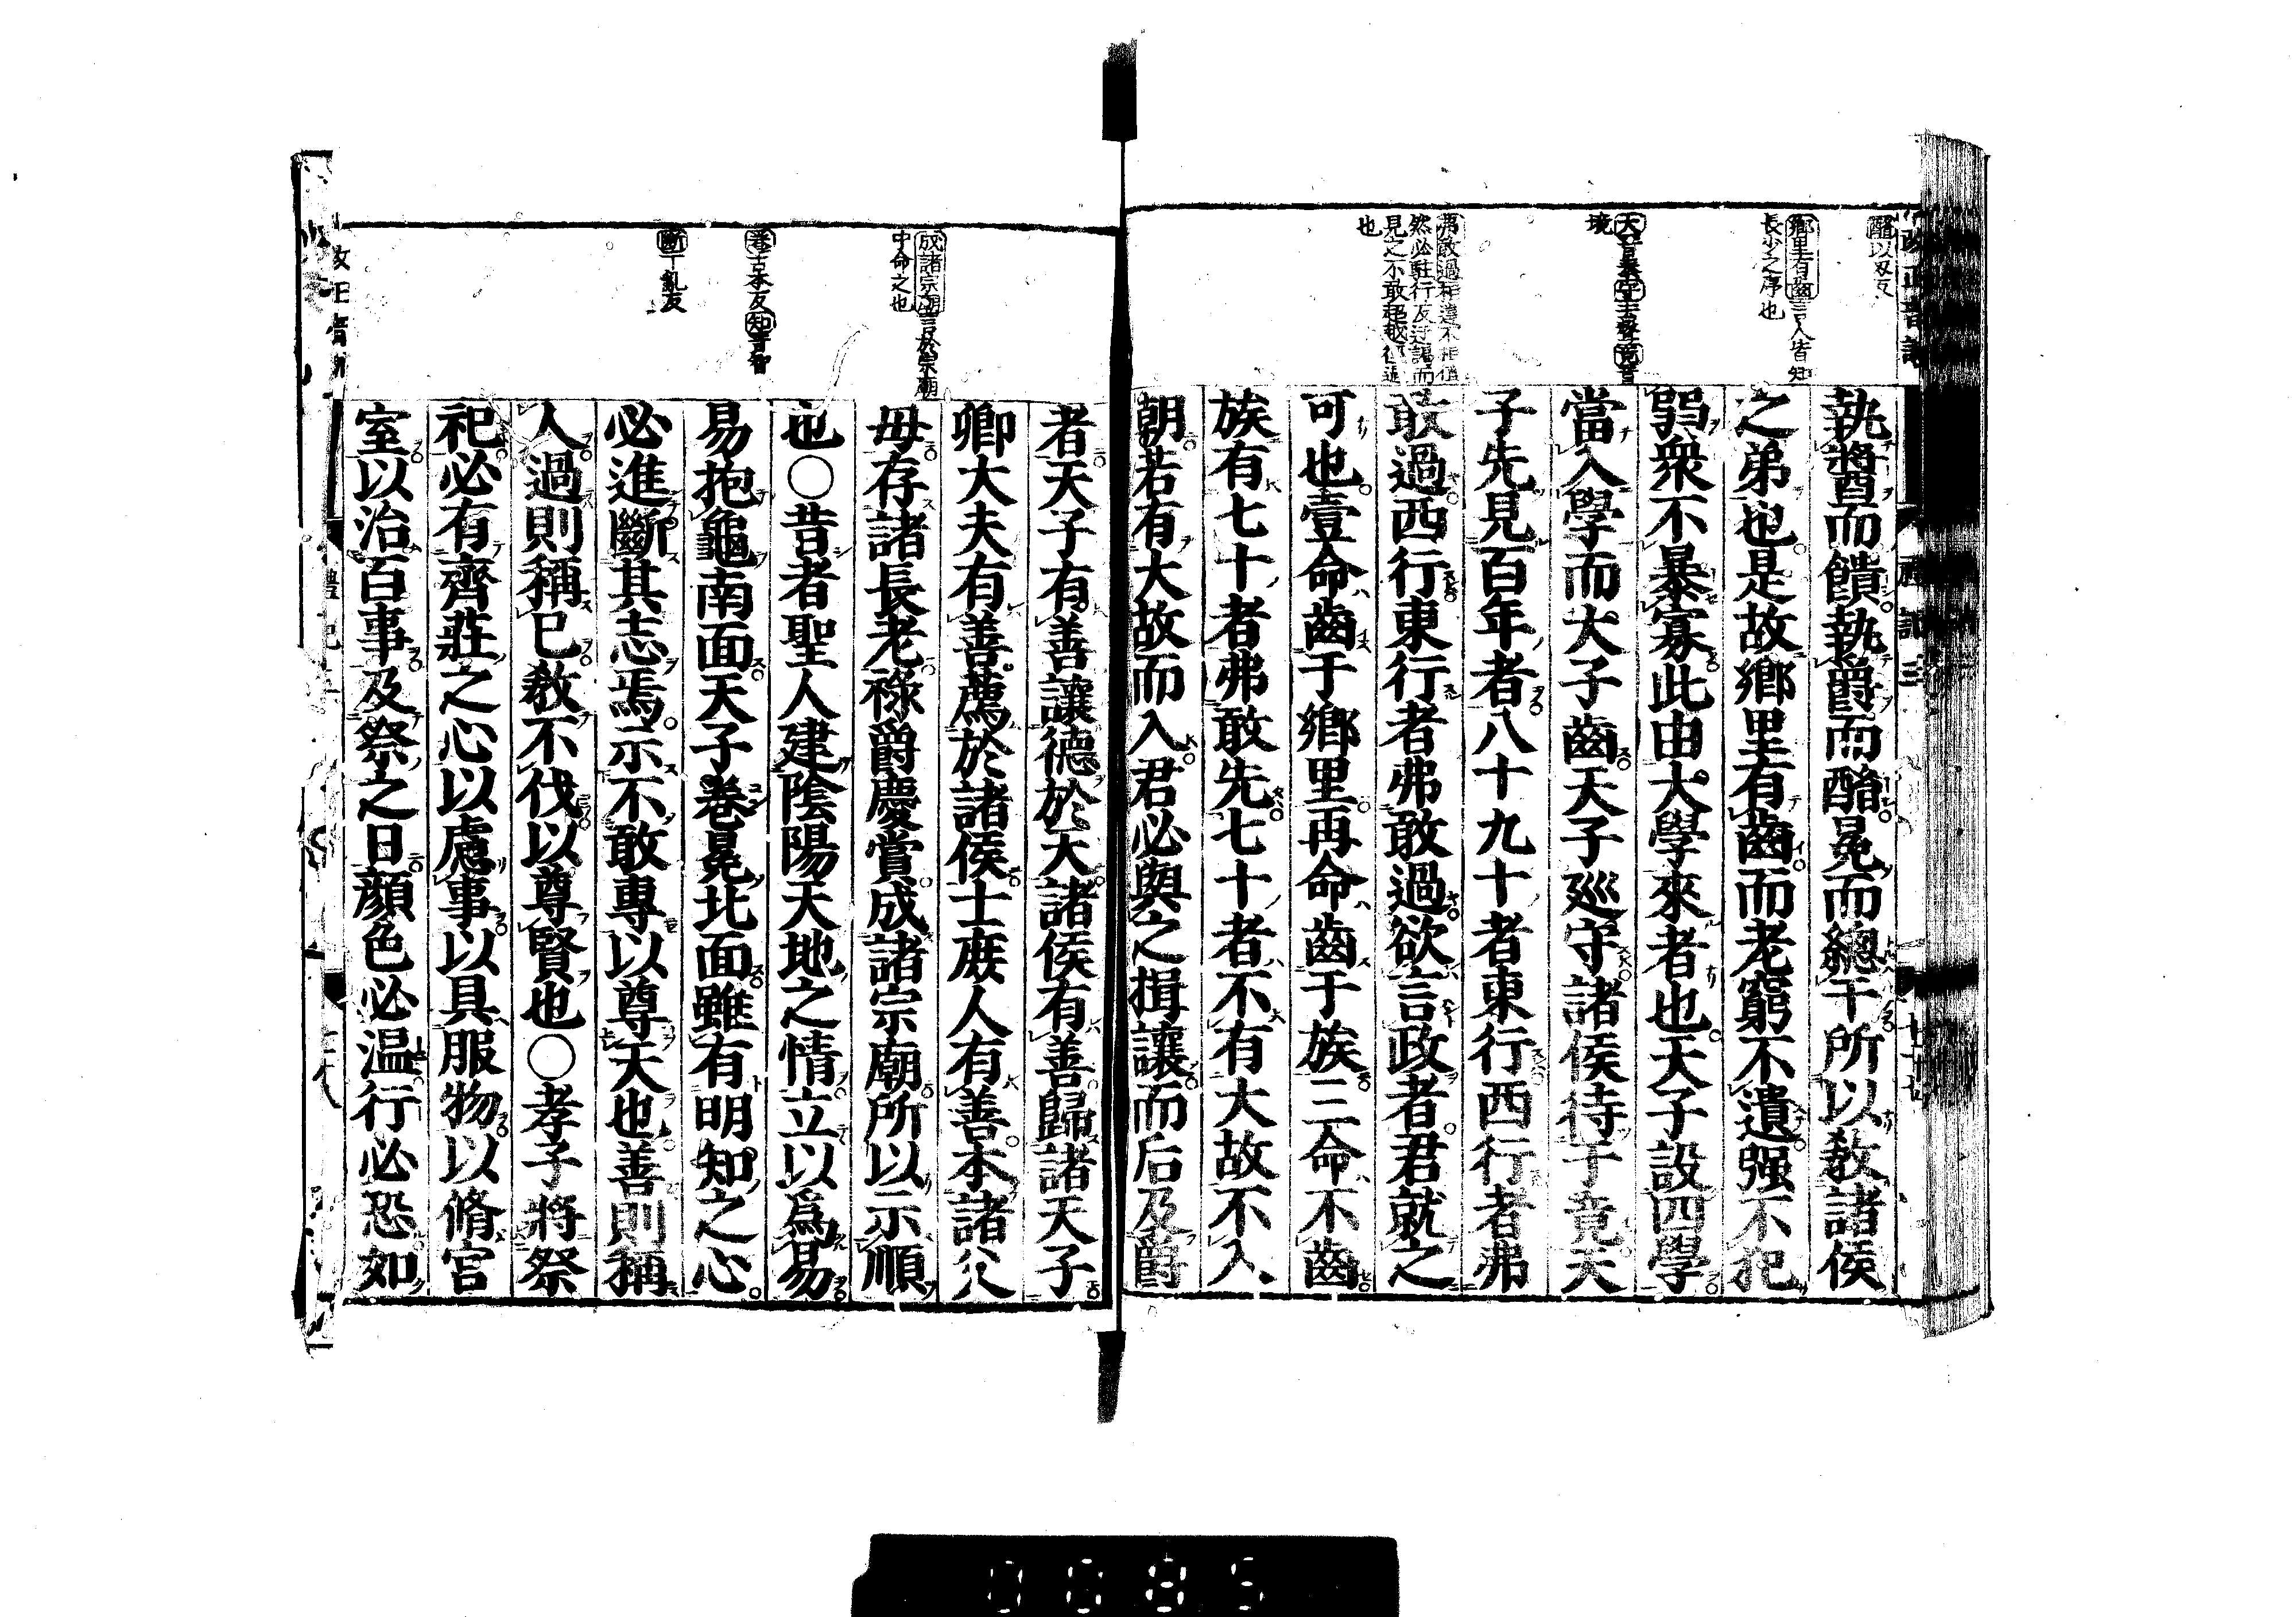 醋以刄反
鄉里有齒言人皆知
長少之序也
境
弗敢過相違不相值
然必駐行反迂謁而
見之不敢超越徑過
也
執醬而饋執爵而酳冕而總干所以敎諸侯
之弟也是故鄉里有齒而老窮不遺强不犯
弱衆不暴寡此由大學來者也天子設四學
當入學而大子齒天子廵守諸侯待于竟天
子先見百年者八十九十者東行西行者弗
敢過西行東行者弗敢過欲言政者君就之
可也壹命齒于鄉里再命齒于族三命不齒
族有七十者弗敢先七十者不有大故不入
朝若有大故而入君必與之揖讓而后及爵
成諸宗廟言於宗廟
中命之也
卷古本反知音智
斷丁亂反
者天子有善讓德於天諸侯有善歸諸天子
卿大夫有善薦於諸侯士庶人有善本諸父
母存諸長老祿爵慶賞成諸宗廟所以示順
也○昔者聖人建陰陽天地之情立以爲易
易抱龜南面天子卷冕北面雖有明知之心
必進斷其志焉示不敢專以尊天也善則稱
人過則稱已敎不伐以尊賢也○孝子將祭
祀必有齊莊之心以慮事以具服物以脩宮
室以治百事及祭之日顏色必温行必恐如
0085